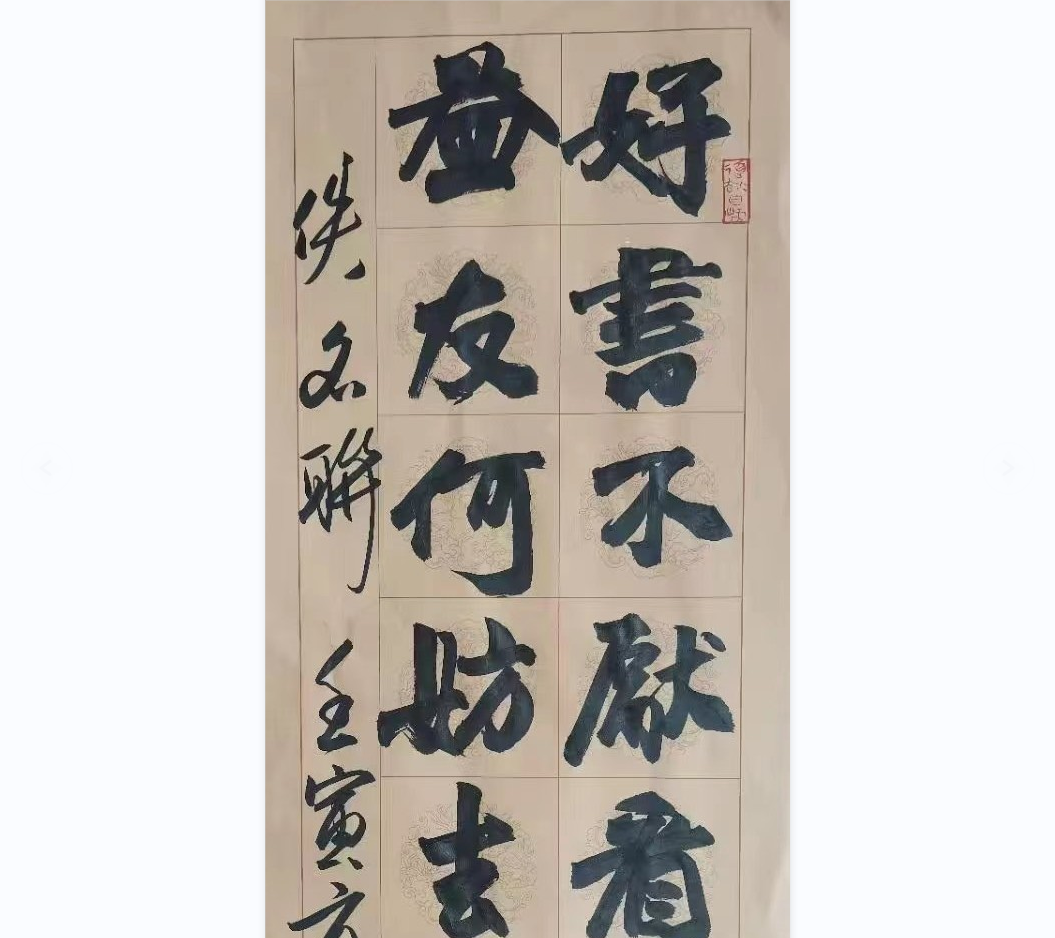 好書不厭看
益友何妨去
佚名聯 壬寅方